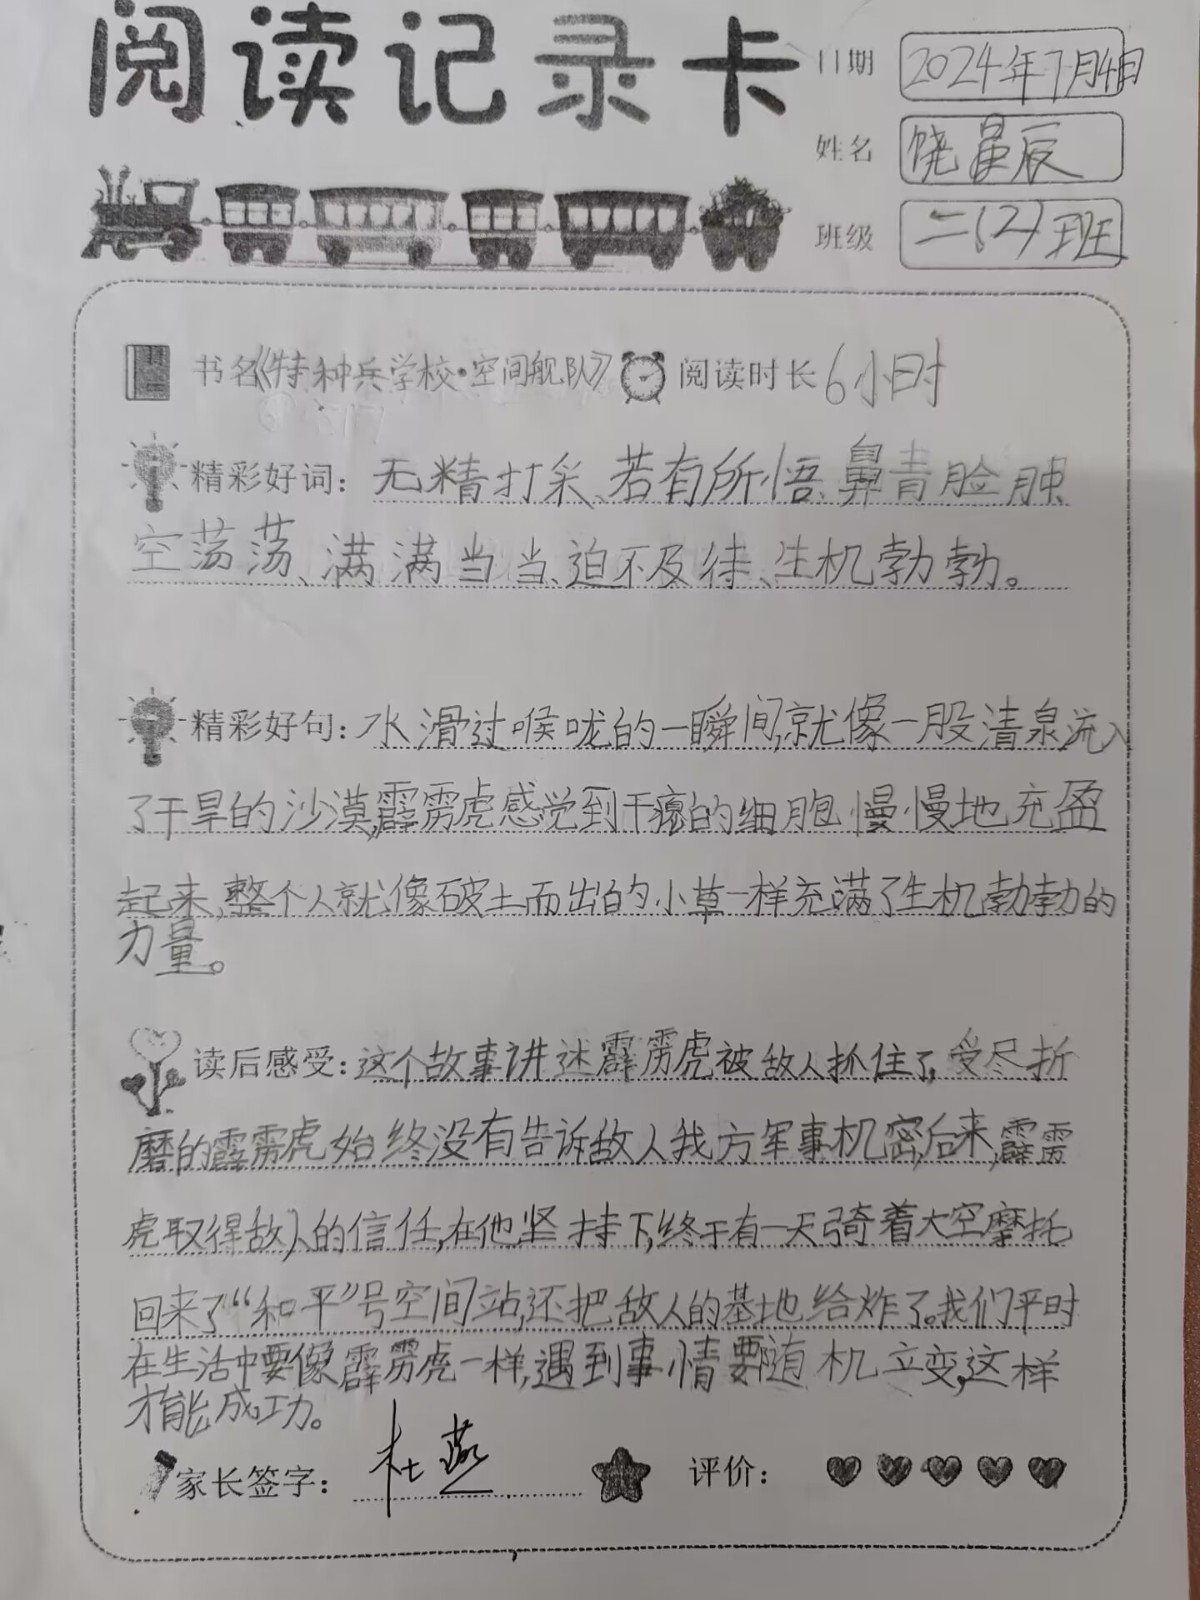 阅读记录卡
日期 2024年7月4日
姓名 饶晨辰
班级 二(2)班
书名《特种兵学校·空间舰队》 阅读时长 6小时
精彩好词：无精打采、若有所悟、鼻青脸肿
空荡荡、满满当当、迫不及待、生机勃勃。
精彩好句：水滑过喉咙的一瞬间,就像一股清泉流入
了干旱的沙漠,霹雳虎感觉到干瘪的细胞慢慢地充盈
起来,整个人就像破土而出的小草一样充满了生机勃勃的
力量。
读后感受：这个故事讲述霹雳虎被敌人抓住了,受尽折
磨的霹雳虎始终没有告诉敌人我方军事机密,后来,霹雳
虎取得敌人的信任,在他坚持下,终于有一天骑着太空摩托
回来了“和平”号空间站,还把敌人的基地给炸了。我们平时
在生活中要像霹雳虎一样,遇到事情要随机立变,这样
才能成功。
家长签字：杜燕 评价：